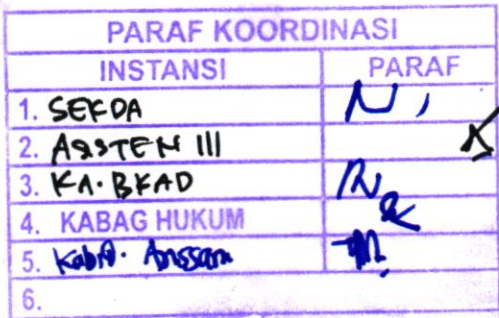 PARAF KOORDINASI
INSTANSI PARAF
1. SEKDA
2. ASISTEN III
3. KA. BKAD
4. KABAG HUKUM
5. Kabid. Anggaran
6.